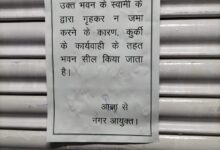 उक्त भवन के स्वामी के
द्वारा गृहकर न जमा
करने के कारण, कुर्की
के कार्यवाही के तहत
भवन सील किया जाता
है।
आज्ञा से
नगर आयुक्त।